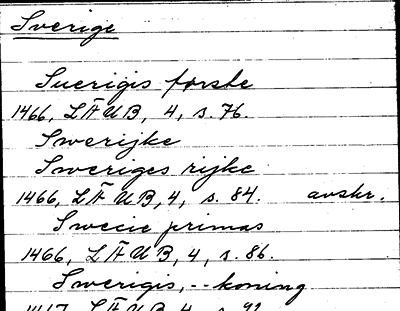 Sverige
Suerigis første
1466, LÄUB, 4, s. 76.
Swerijke
Sweriges rijke
1466, LÄUB, 4, s. 84. avskr.
Swecie primas
1466, LÄUB, 4, s. 86.
Swerigis, -- koning
LÄUB, 4, s. 92